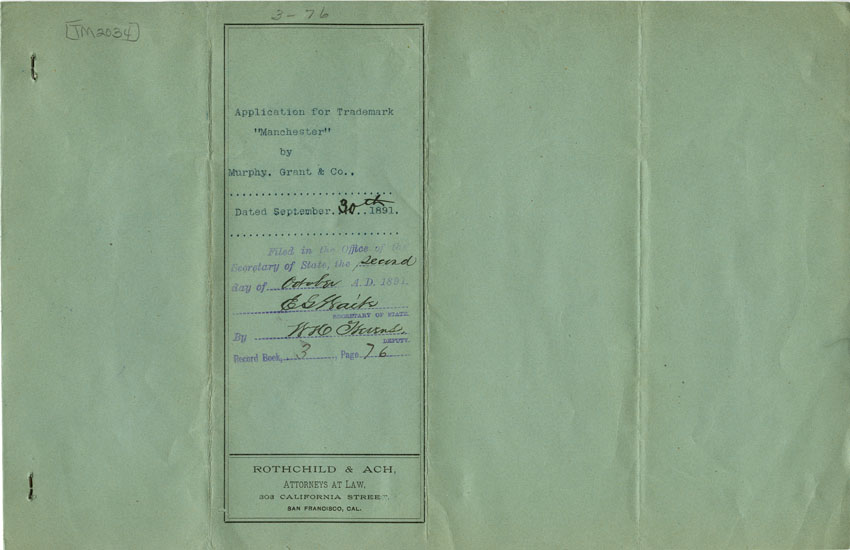 3-76
[TM2034]
Application for Trademark
"Manchester"
by
Murphy, Grant & Co.,
Dated September, 30th, 1891.
Filed in the Office of the
Secretary of State, the second
day of October A.D. 1891.
E G Waite
SECRETARY OF STATE.
By W H
DEPUTY.
Record Book, 3, Page 76
ROTHCHILD & ACH,
ATTORNEYS AT LAW,
303 CALIFORNIA STREET,
SAN FRANCISCO, CAL.